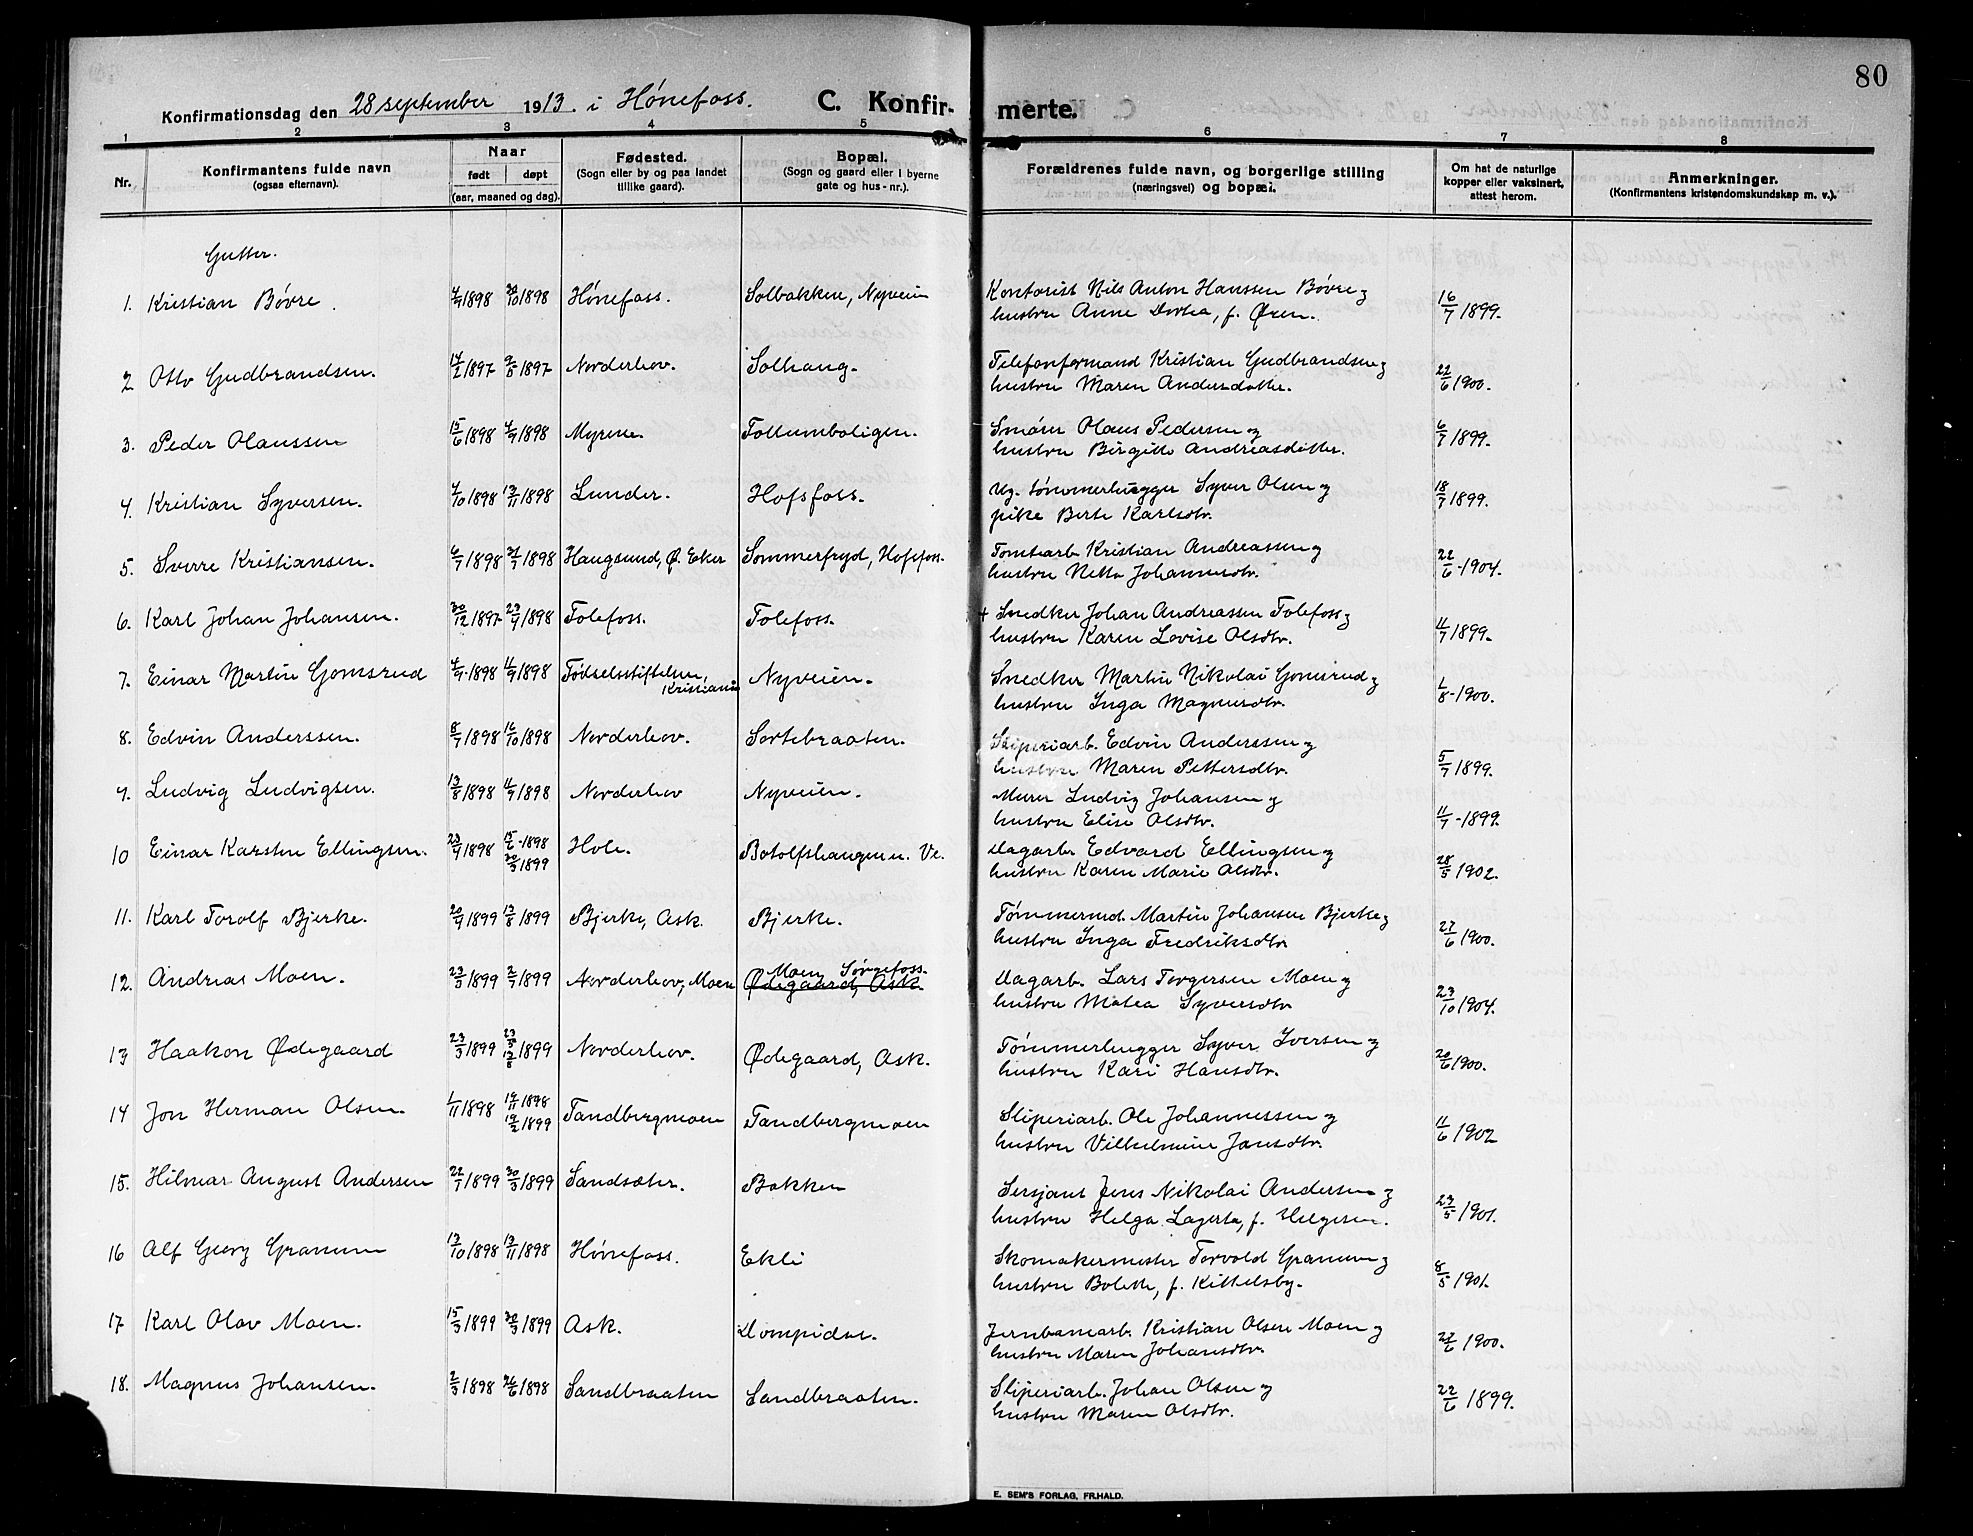 80
Konfirmationsdag den 28 september 1913. i Hønefoss. C. Konfirmerte.
1 2 3 4 5 6 7 8
Nr.
Konfirmantens fulde navn
(ogsaa efternavn).
Naar
født døpt
(aar, maaned og dag).
Fødested.
(Sogn eller by og paa landet
tillike gaard).
Bopæl.
(Sogn og gaard eller i byerne
gate og hus-nr.).
Forældrenes fulde navn, og borgerlige stilling
(næringsvei) og bopæl.
Om hat de naturlige
kopper eller vaksinert,
attest herom.
Anmerkninger.
(Konfirmantens kristendomskundskap m. v.).
Gutter.
1. Kristian Bøvre. 4/9 1898 30/10 1898 Hønefoss. Solbakken, Nyveien Kontorist Nils Anton Hanssen Bøvre og
hustru Anne Dortea, f. Øren. 16/7 1899.
2 Otto Gudbrandsen. 14/2 1897 9/5 1897 Norderhov. Solhaug. Telefonformand Kristian Gudbrandsen og
hustru Maren Andersdotter. 22/6 1900.
3. Peder Olaussen 15/6 1898 4/9 1898 Myrene. Follumboligen. Smører Olaus Pedersen og
hustru Birgitte Andreasdotter. 6/7 1899.
4. Kristian Syversen. 4/10 1898 13/11 1898 Lunder. Hofsfoss. Ug. tømmerhugger Syver Olsen og
pike Berte Karlsdtr. 18/7 1899.
5. Sverre Kristiansen. 6/7 1898 31/7 1898 Haugsund, Ø. Eker Sommerfryd, Hofsfoss. Tomtearb. Kristian Andreassen og
hustru Netta Johannesdtr. 22/6-1904.
6. Karl Johan Johansen. 30/12 1897 23/4 1898 Tolefoss. Tolefoss. + Snedker Johan Andreassen Tolefoss og
hustru Karen Lovise Olsdtr. 11/7 1899.
7. Einar Martin Gomsrud 4/4 1898 11/9 1898 Fødselsstiftelsen,
Kristiania Nyveien. Snedker Martin Nikolai Gomsrud og
hustru Inga Magnusdtr. 1/8-1900.
8. Edvin Anderssen. 8/7 1898 16/10 1898 Norderhov. Sortebraaten. Sliperiarb. Edvin Anderssen og
hustru Maren Pettersdtr. 5/7 1899.
9. Ludvig Ludvigsen. 13/8 1898 11/9 1898 Norderhov Nyveien. Murer Ludvig Johansen og
hustru Elise Olsdtr. 11/7-1899.
10 Einar Karsten Ellingsen. 23/4 1898 15/5-1898
30/3 1899 Hole. Botolfshaugen u. Ve. Dagarb. Edvard Ellingsen og
hustru Karen Marie Olsdtr. 28/5 1902.
11. Karl Torolf Bjerke. 20/4 1899 13/8 1899 Bjerke, Ask. Bjerke. Tømmermd. Martin Johansen Bjerke og
hustru Inga Fredriksdtr 27/6 1900.
12. Andreas Moen. 23/3 1899 2/7 1899 Norderhov, Moen Moen Sørgefoss.
Ødegaard, Ask. Dagarb. Lars Torgersen Moen og
hustru Matea Syversdtr 23/10 1904.
13 Haakon Ødegaard 23/3 1899 23/3
13/8 1899 Norderhov. Ødegaard, Ask. Tømmerhugger Syver Iversen og
hustru Kari Hansdtr. 20/6 1900.
14 Jon Herman Olsen. 1/11 1898 19/11 1898
19/2 1899 Tandbergmoen Tandbergmoen Sliperiarb. Ole Johannessen og
hustru Vilhelmine Jansdtr. 11/6 1902
15. Hilmar August Andersen 22/1 1899 30/3 1899 Sandsæter. Bakken Sersjant Jens Nikolai Andersen og
hustru Helga Lagerta, f. Helgesen. 23/5 1901.
16 Alf Georg Granum 13/10 1898 13/11 1898 Hønefoss. Ekli Skomakermester Torvald Granum og
hustru Bolette, f. Kittelsby. 8/5 1901.
17 Karl Olav Moen. 15/3 1899 30/3 1899 Ask. Dompidse. Jernbanearb. Kristian Olsen Moen og
hustru Maren Johansdtr. 22/6 1900.
18. Magnus Johansen. 2/3 1898 26/6 1898 Sandbraaten Sandbraaten. Sliperiarb. Johan Olsen og
hustru Maren Olsdtr. 22/6 1899.
E. SEM'S FORLAG, FR.HALD.